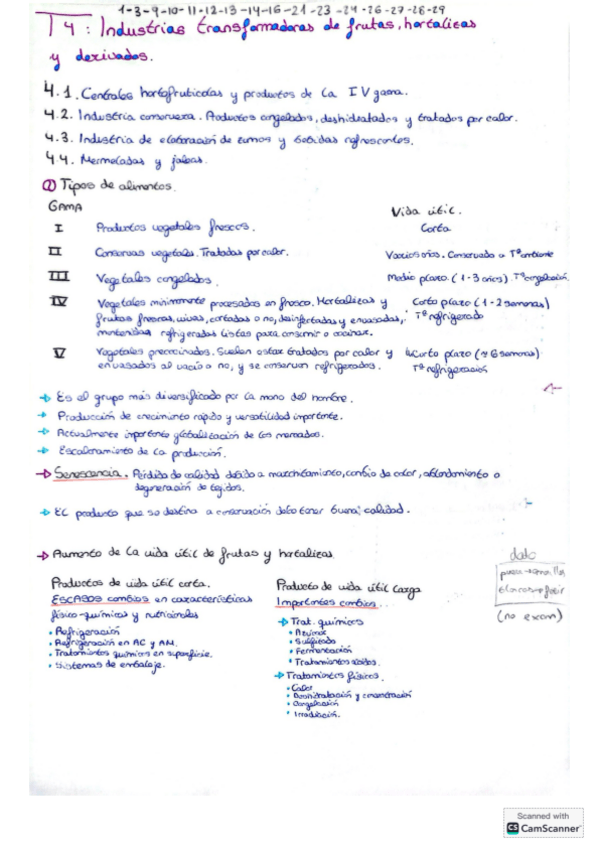 1-3-9-10-11-12-13-14-16-21-23-24-26-27-28-29
T4: Industrias transformadoras de frutas, hortalizas
y derivados.
4.1. Centrales hortofrutícolas y productos de la IV gama.
4.2. Industria conservera. Productos congelados, deshidratados y tratados por calor.
4.3. Industria de elaboración de zumos y bebidas refrescantes.
4.4. Mermeladas y jaleas.
Tipos de alimentos.
GAMA
Vida útil.
I Productos vegetales frescos. Corta
II Conservas vegetales. Tratadas por calor. Varios años. Conservado a Tª ambiente
III Vegetales congelados. Medio plazo. (1-3 años). Tª congelación.
IV Vegetales mínimamente procesados en fresco. Hortalizas y Corto plazo (1-2 semanas)
frutas frescas, vivas, cortadas o no, desinfectadas y envasadas, Tª refrigerado
mantenidas refrigeradas listas para consumir o cocinar.
V Vegetales precocinados. Suelen estar tratados por calor y Corto plazo (≈ 6 semanas)
envasados al vacío o no, y se conservan refrigerados. Tª refrigeración
→ Es el grupo más diversificado por la mano del hombre.
→ Producción de crecimiento rápido y versatilidad importante.
→ Actualmente importante globalización de los mercados.
→ Escalonamiento de la producción.
→ Senescencia. Pérdida de calidad debido a marchitamiento, cambio de color, ablandamiento o
degeneración de tejidos.
→ El producto que se destina a conservación debe tener buena calidad.
→ Aumento de la vida útil de frutas y hortalizas
dato
Productos de vida útil corta.
ESCASOS cambios en características
físico-químicas y nutricionales
• Refrigeración
• Refrigeración en AC y AM.
• Tratamientos químicos en superficie.
• Sistemas de embalaje.
Producto de vida útil larga
Importantes cambios...
→ Trat. químicos
• Azúcar
• Sulfitado
• Fermentación
• Tratamientos ácidos.
→ Tratamientos físicos.
• Calor
• Deshidratación y concentración
• Congelación
• Irradiación.
(no exam)
Scanned with
CS CamScanner